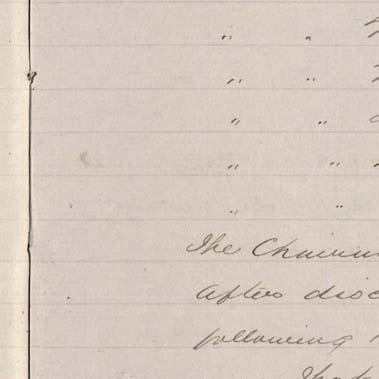 " "
" "
" "
" "
" "
The Chairm
After disc
following